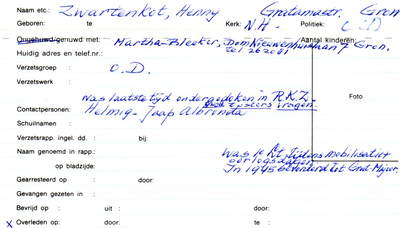 Naam etc.: Zwartenkot, Henny Gratamastr. Gron
Geboren: te Kerk: N.H. Politiek:
Ongehuwd/gehuwd met: Martha Bleeker, Dom Nieuwenhuislaan 7 Gron.
Aantal kinderen:
Huidig adres en telef.nr.: tel 262081
Verzetsgroep : O.D.
Verzetswerk :
was laatste tijd ondergedoken in R.K.Z.
zusters vragen. Foto
Contactpersonen: Helmig - Jaap Albronda
Schuilnaam :
Verzetsrapp. ingel. dd. : bij:
Naam genoemd in rapp.: was 1e Lt. tijdens mobilisatie +
op bladzijde: oorlogsdagen
In 1945 bevorderd tot Majoor.
Gearresteerd op : door:
Gevangen gezeten in :
Bevrijd op : uit : door:
x Overleden op: door: te :